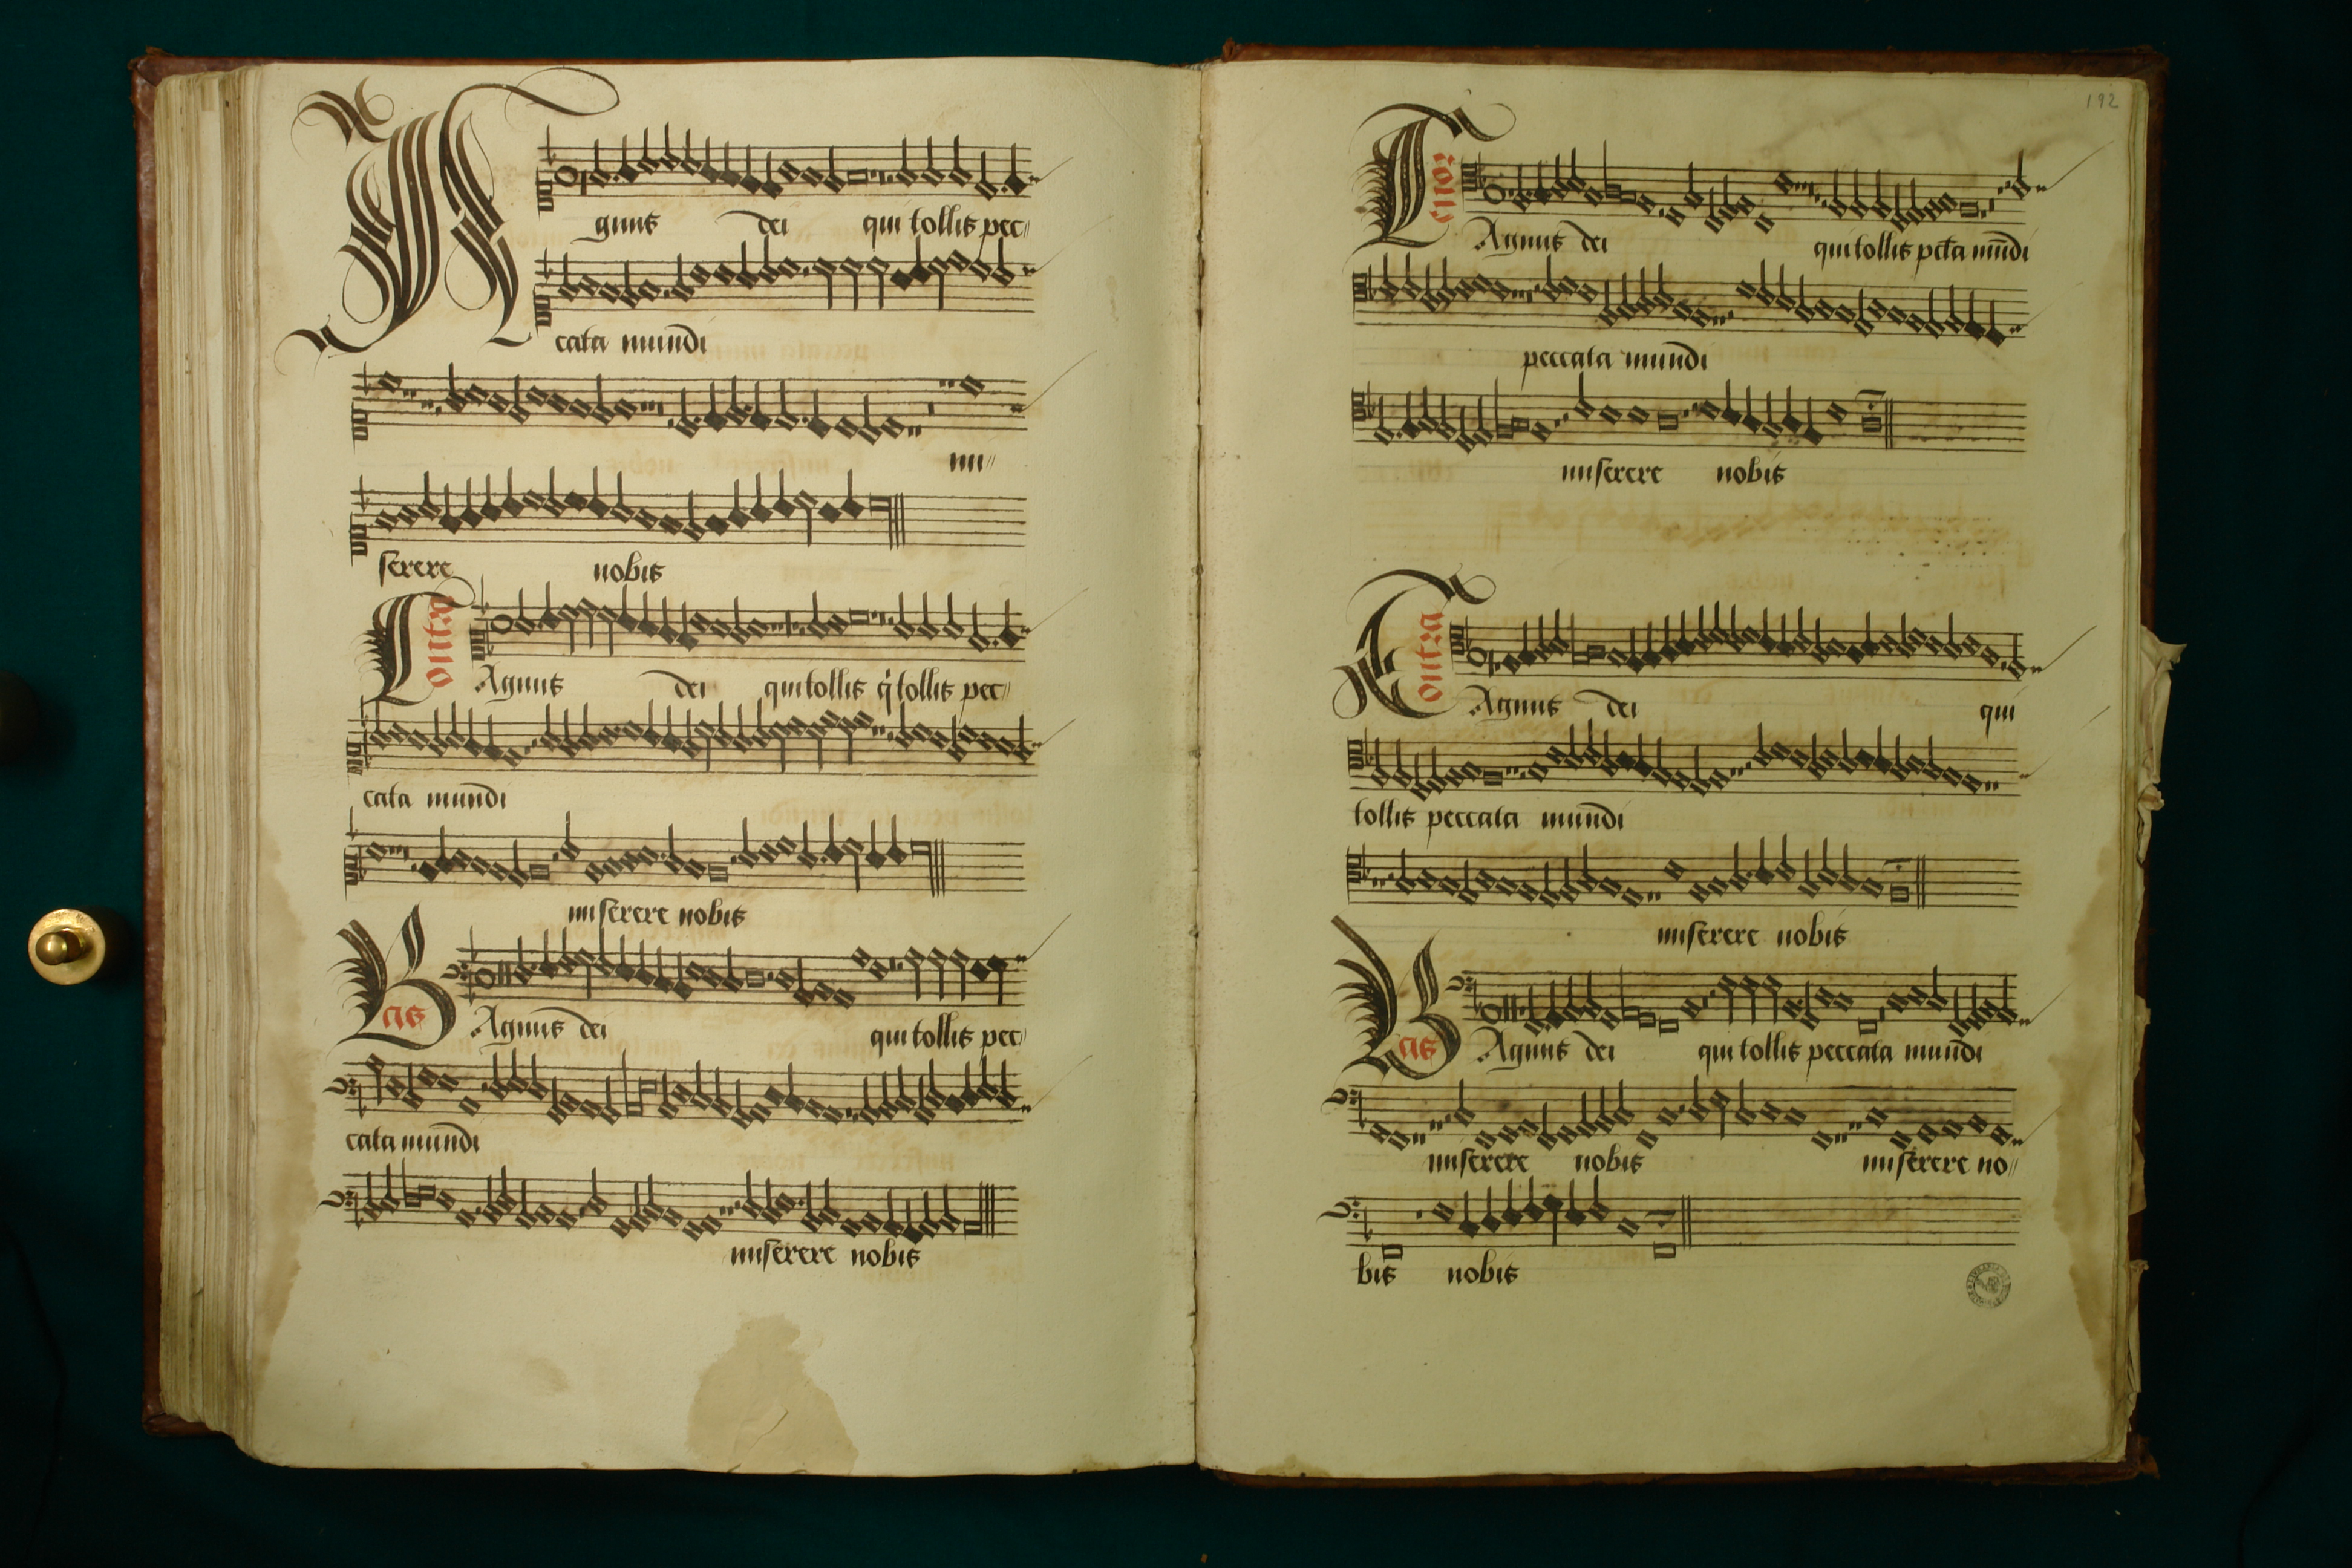 Agnus dei qui tollis pec
cata mundi
mi
serere nobis
Contra
Agnus dei qui tollis q tollis pec
cata mundi
miserere nobis
Bas
Agnus dei qui tollis pec
cata mundi
miserere nobis
192
Tenor
Agnus dei qui tollis pcta mudi
peccata mundi
miserere nobis
Contra
Agnus dei qui
tollis peccata mundi
miserere nobis
Bas
Agnus dei qui tollis peccata mundi
miserere nobis miserere no
bis nobis